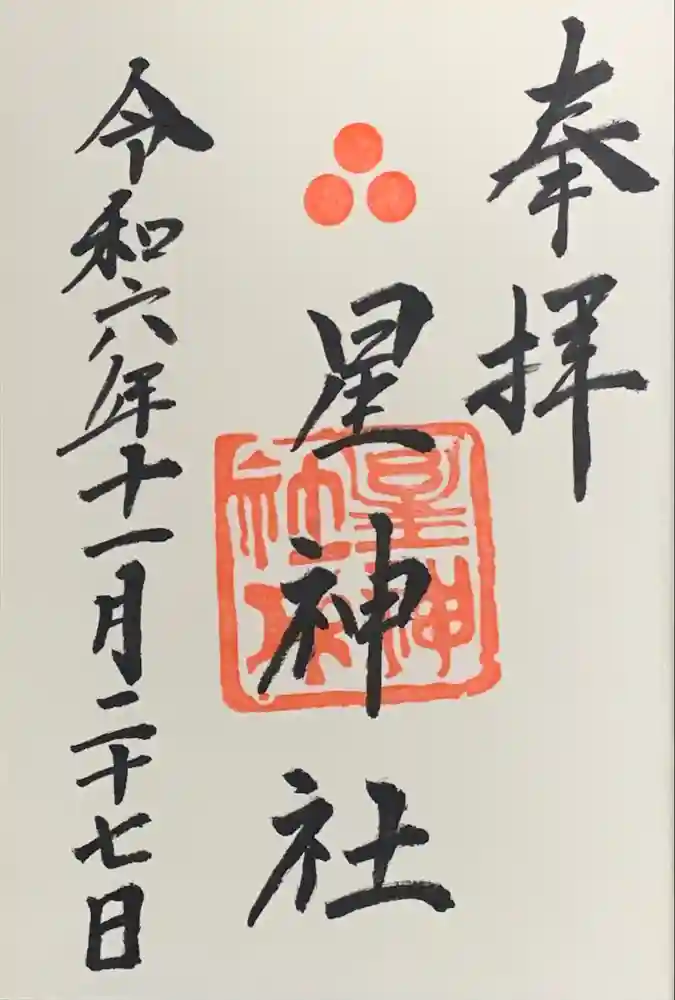 奉拝
星神社
令和六年十一月二十七日